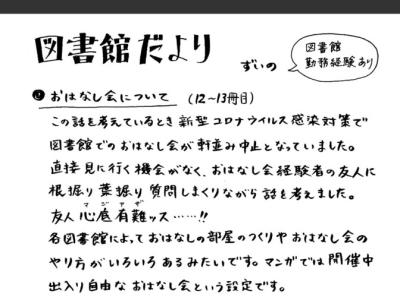 図書館だより
ずいの
図書館
勤務経験あり
おはなし会について (12~13冊目)
この話を考えているとき新型コロナウイルス感染対策で
図書館でのおはなし会が軒並み中止となっていました。
直接見に行く機会がなく、おはなし会経験者の友人に
根掘り葉掘り質問しまくりながら話を考えました。
マジアザ
友人 心底有難ッス……!!
各図書館によっておはなしの部屋のつくりやおはなし会の
やり方がいろいろあるみたいです。マンガでは開催中
出入り自由なおはなし会という設定です。